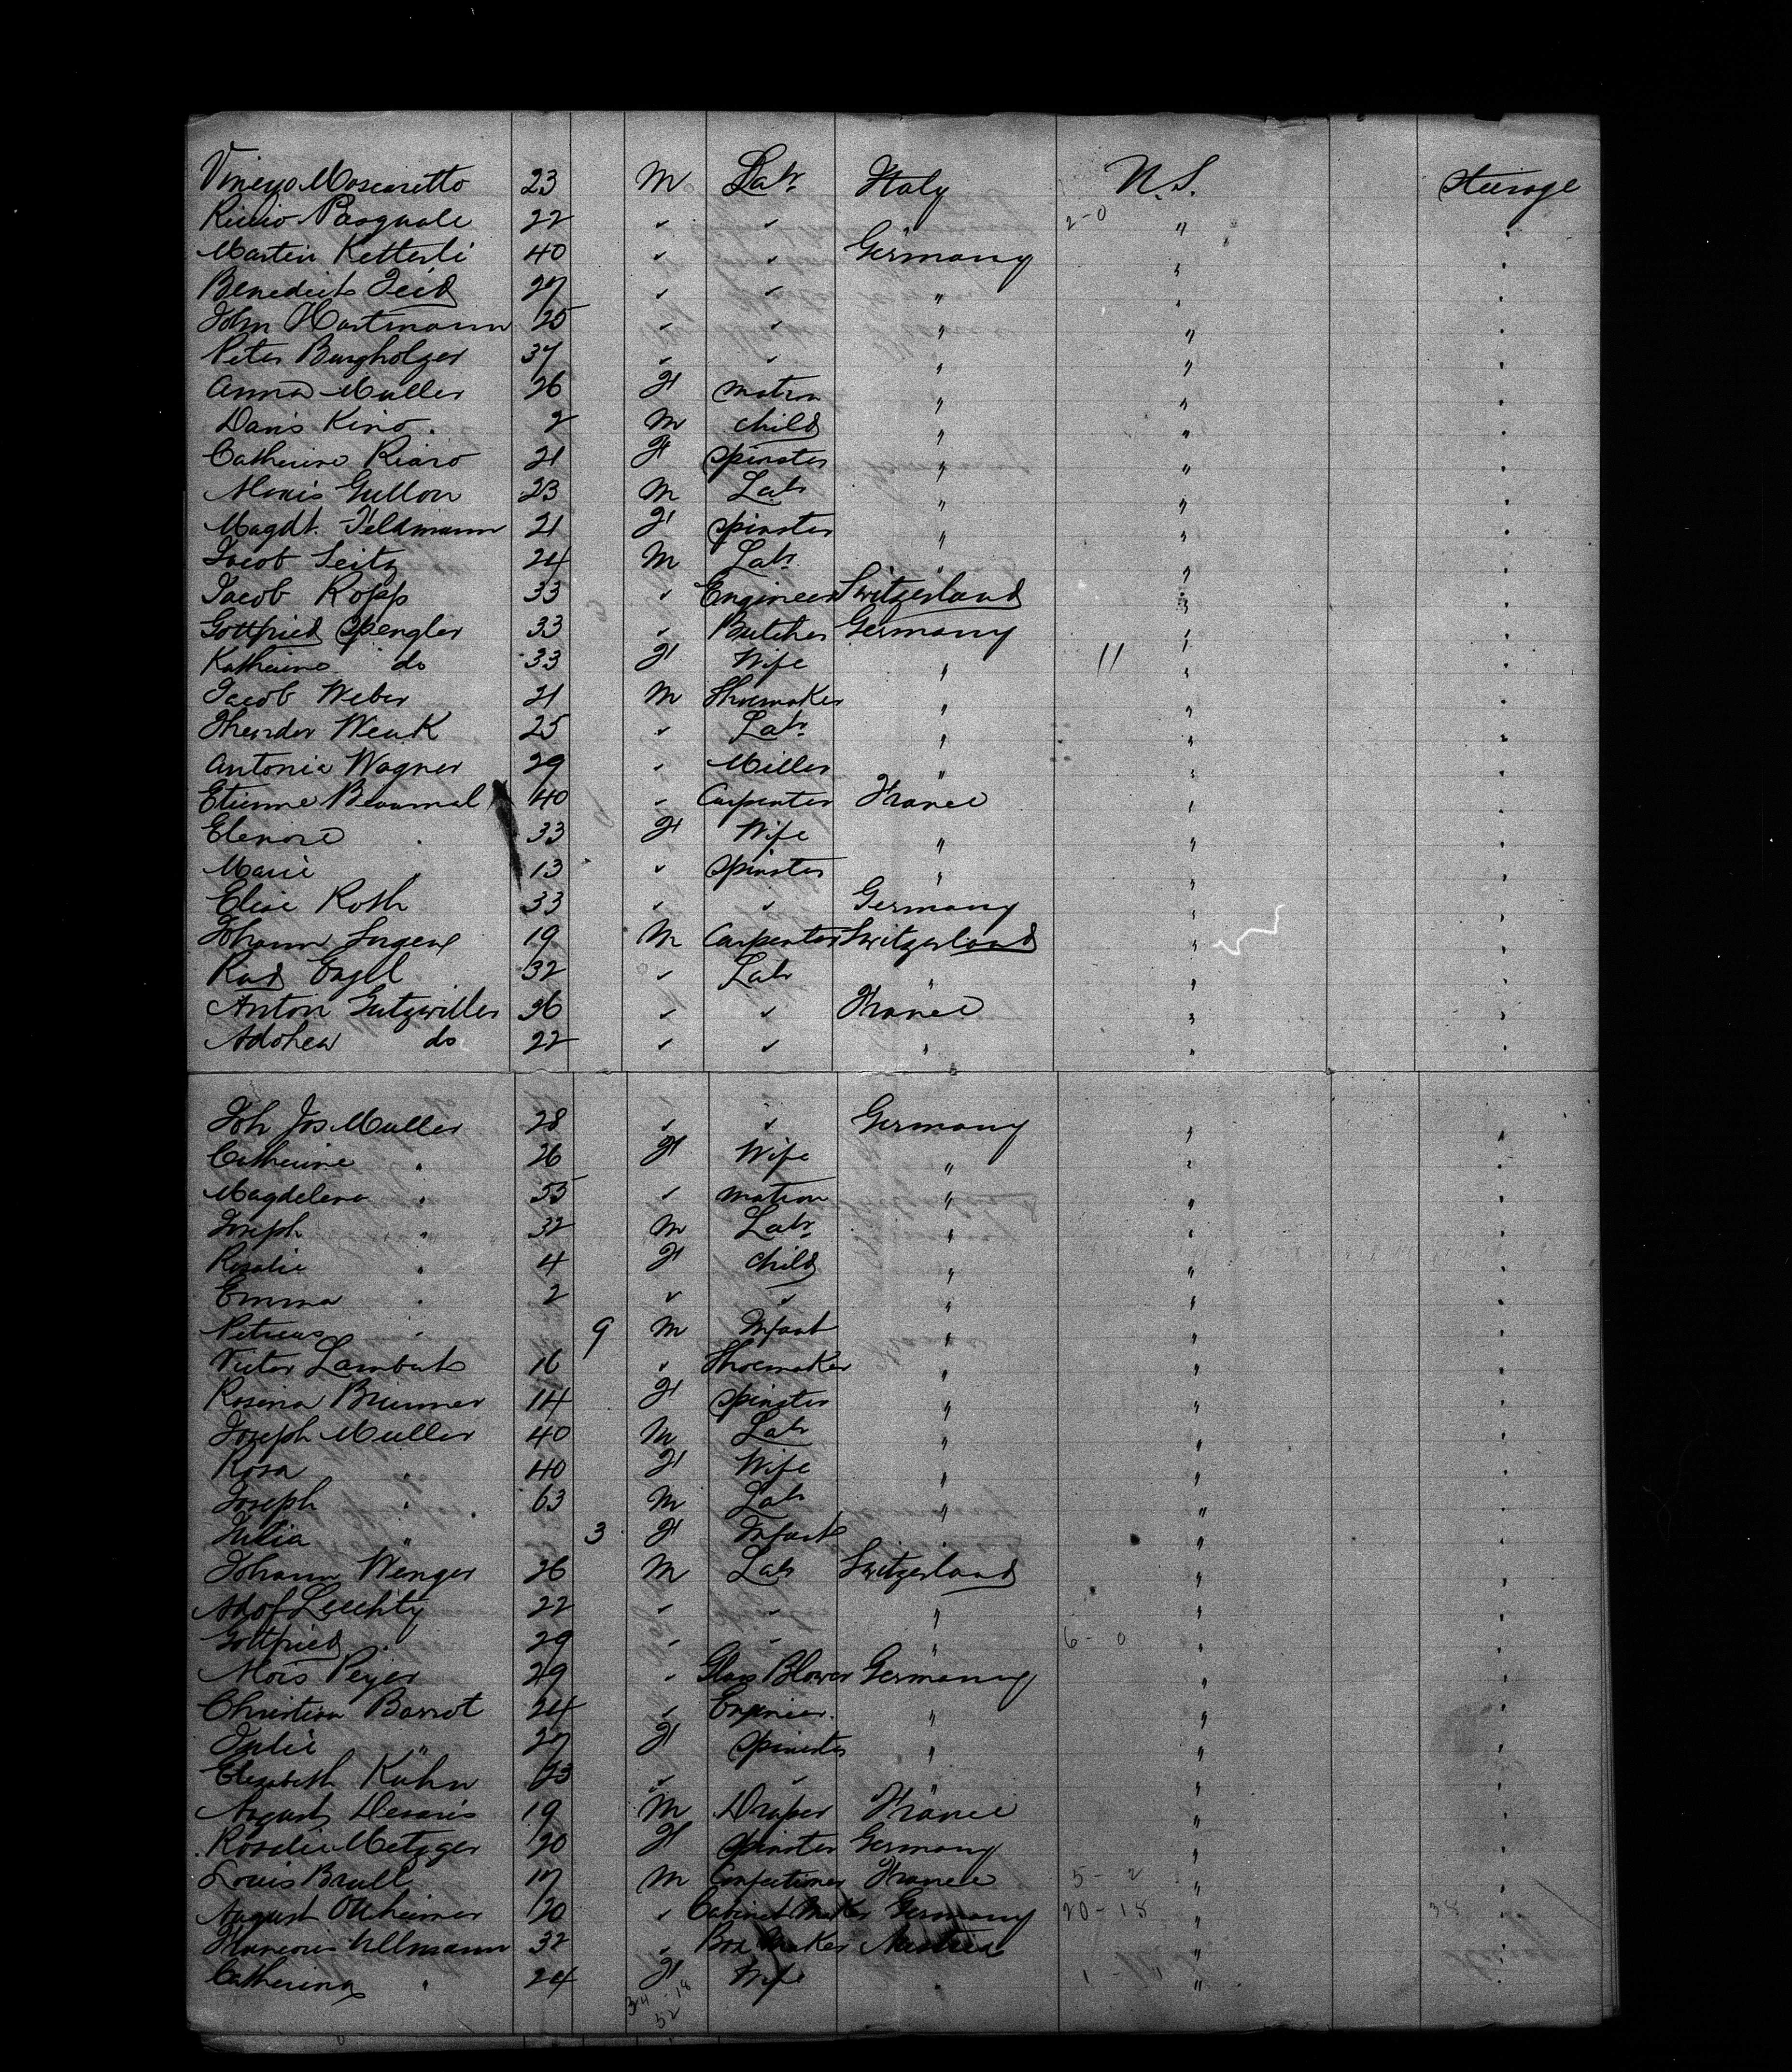 Moscaretto 23 M Labr Italy U.S. Steerage
Pasquale 22 " " "
Martin Ketterli 40 " " Germany "
Benedict 27 " " " "
John Hartmann 25 " " " "
Peter Burgholzer 37 " " " "
Anna Muller 26 F matron " "
Kino 2 M child " "
Catherine 21 F spinster " "
23 M Labr " "
Magdt. Feldmann 21 F spinster " "
Jacob Seitz 24 M Labr " "
Jacob Ropp 33 " Engineer Switzerland "
Gottfried Spengler 33 " Butcher Germany "
Katherine do 33 F Wife " "
Jacob Weber 21 M Shoemaker " "
Weuk 25 " Labr " "
Antonia Wagner 29 " Miller " "
Etienne 40 " Carpenter France "
Elenore " 33 F Wife " "
Marie " 13 " spinster " "
Elise Roth 33 " " Germany "
Johann 19 M Carpenter Switzerland "
Rud Engel 32 " Labr " "
Anton Gutzwiller 36 " " France "
do 22 " " " "
Joh Jos Muller 28 " " Germany "
Catherine " 26 F Wife " "
Magdelena " 55 " matron " "
Joseph " 32 M Labr " "
Rosalie " 4 F child " "
Emma " 2 " " " "
9 M Infant " "
Victor Lambert 16 " Shoemaker " "
Rosina Brunner 14 F spinster " "
Joseph Muller 40 M Labr " "
Rosa " 40 F Wife " "
Joseph " 63 M Labr " "
Julia " 3 F Infant " "
Johann Wenger 26 M Labr Switzerland "
Adof Leechty 22 " " " "
Gottfried " 29 " " " "
Peyer 29 " Glass Blower Germany "
Christian Barrot 24 " Engineer " "
Julie " 27 F spinster " "
Elizabeth Kuhn 23 " " " "
August 19 M Draper France "
Rosalie Metzger 20 F spinster Germany "
Louis Brull 17 M Confectioner France 5 - 2 "
August 20 " Cabinet Maker Germany 20 - 18 "
Ullmann 32 " Box Maker Austria "
Catherina " 24 F Wife " "
34 - 18
52